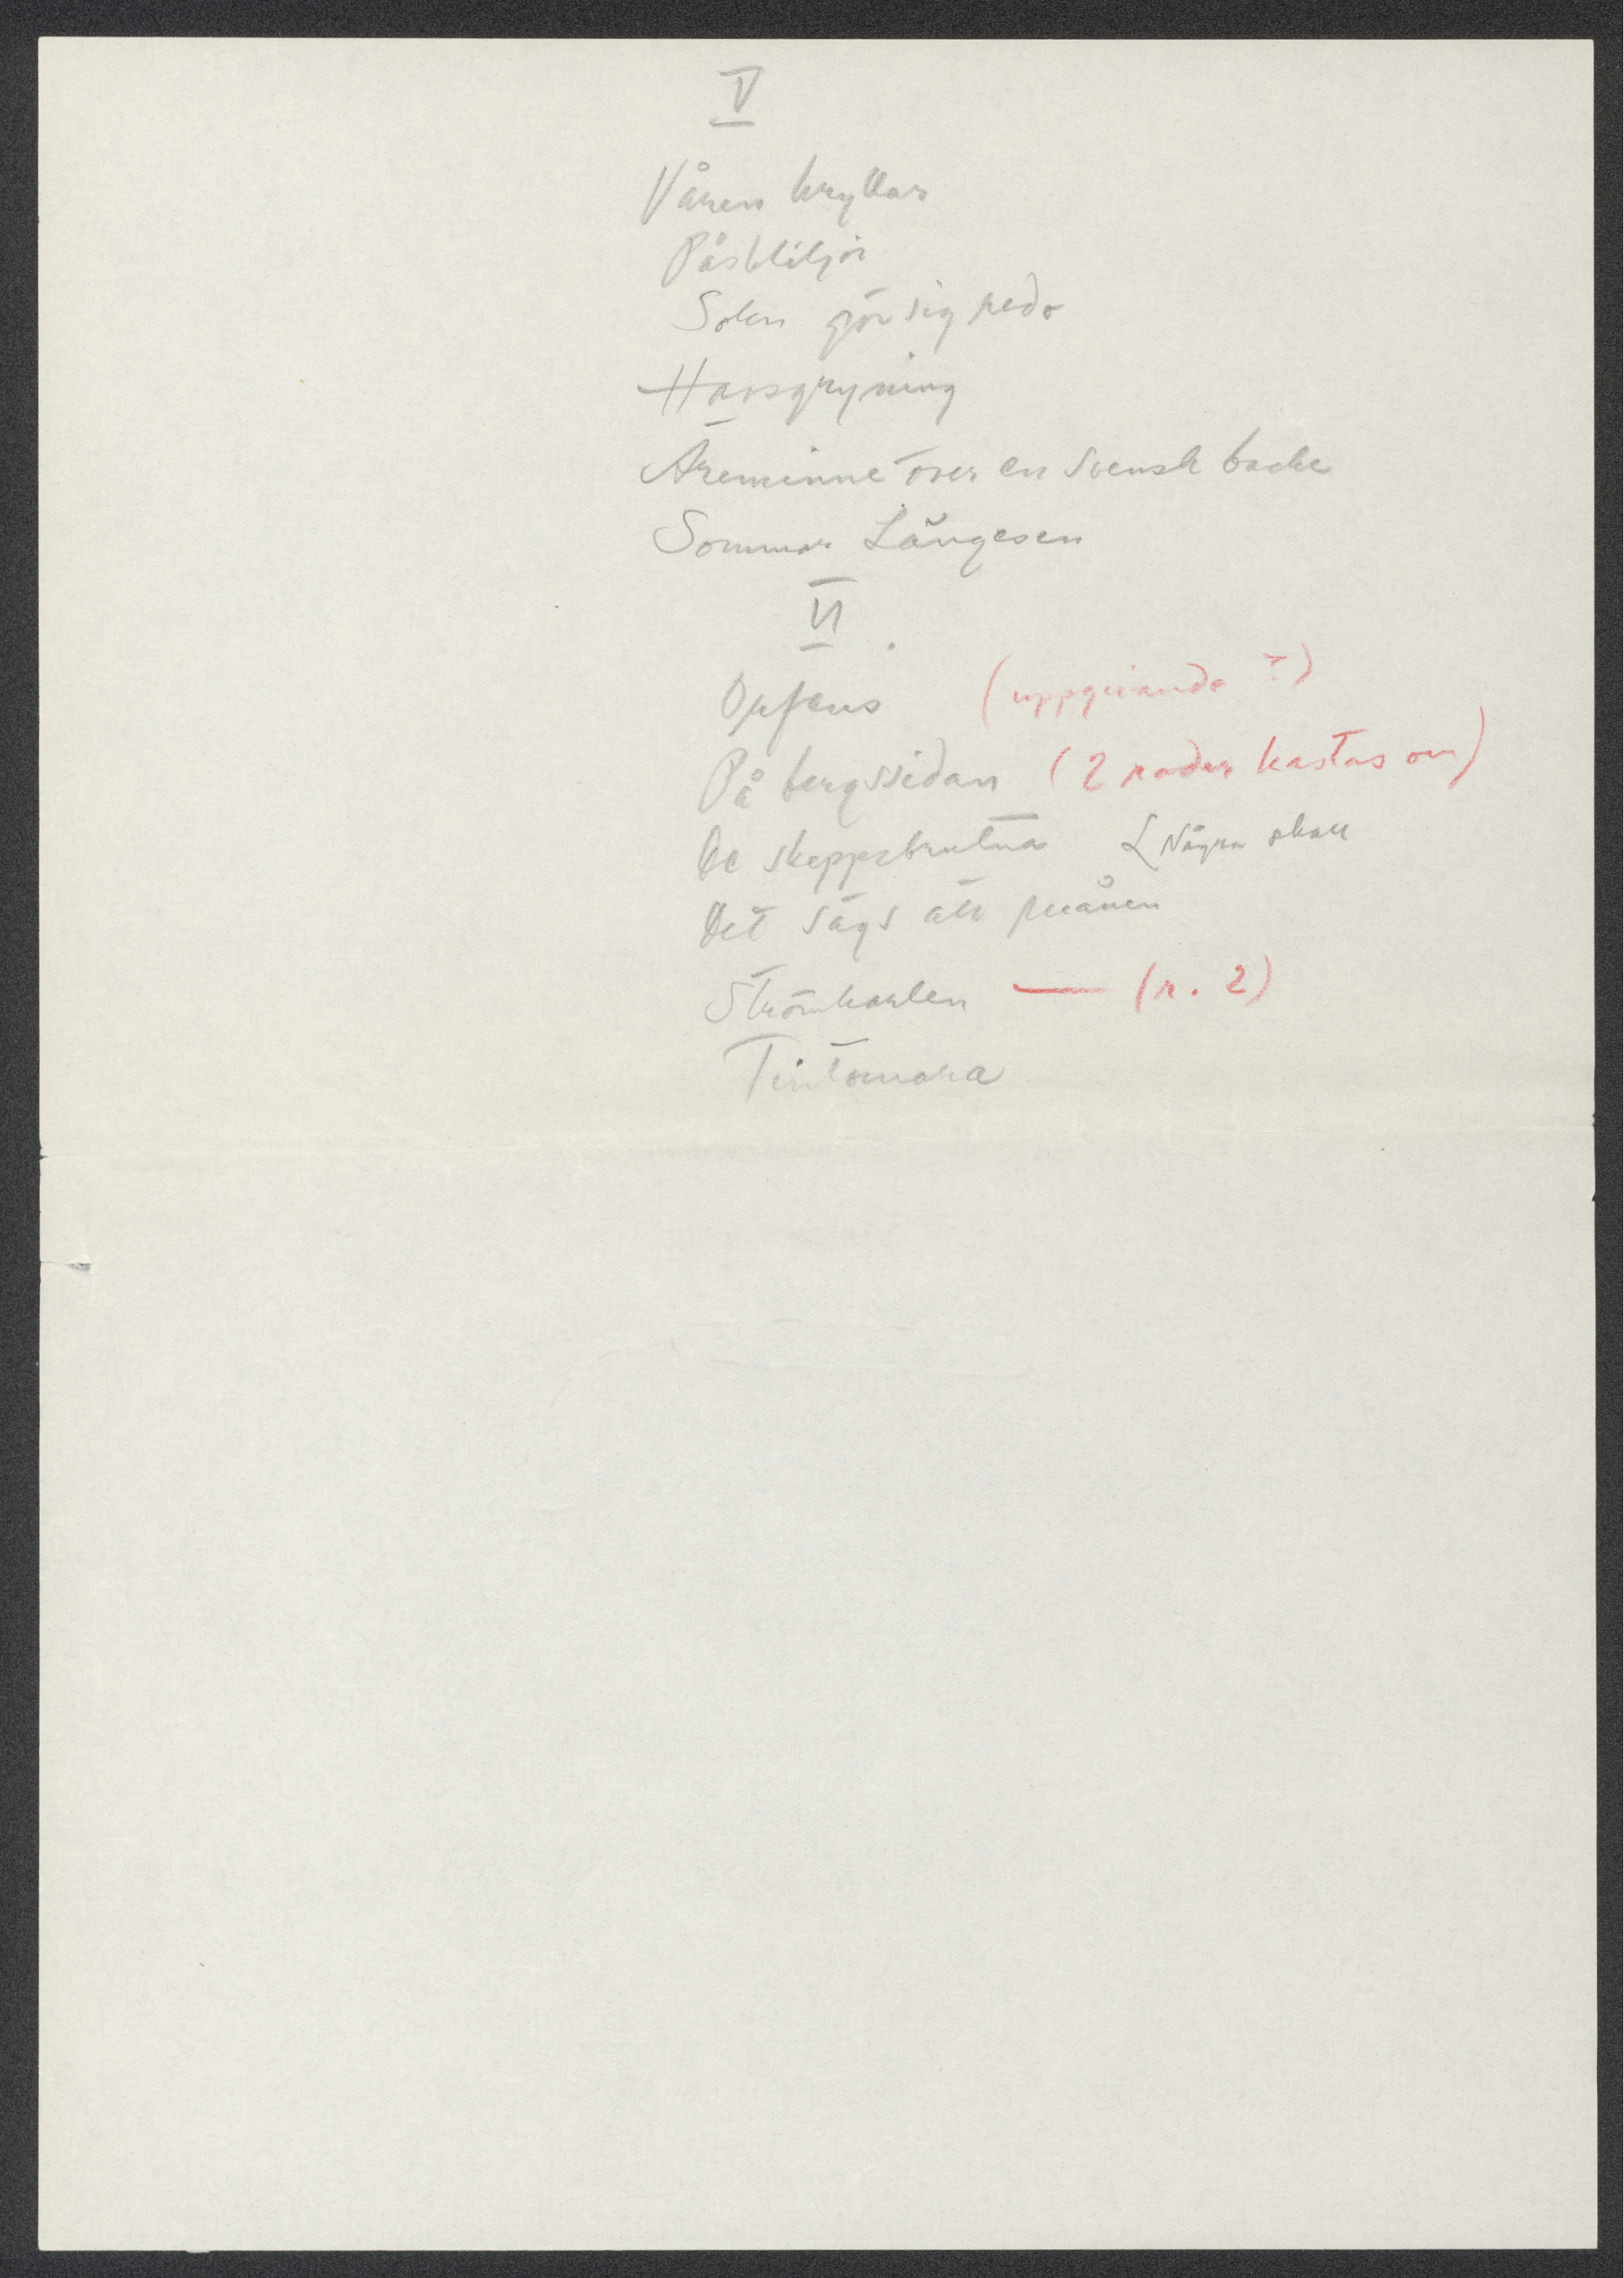 V
Våren kryllar
Påskliljor
Solen gör sig reda
Havsgryning
Äreminne över en svensk backe
Sommar Längesen
VI
Orfeus (uppgivande ?)
På bergssidan (2 rader kastas om)
De skeppsbrutna Några skall
Det sägs att månen
Strömkarlen — (r. 2)
Tintomara